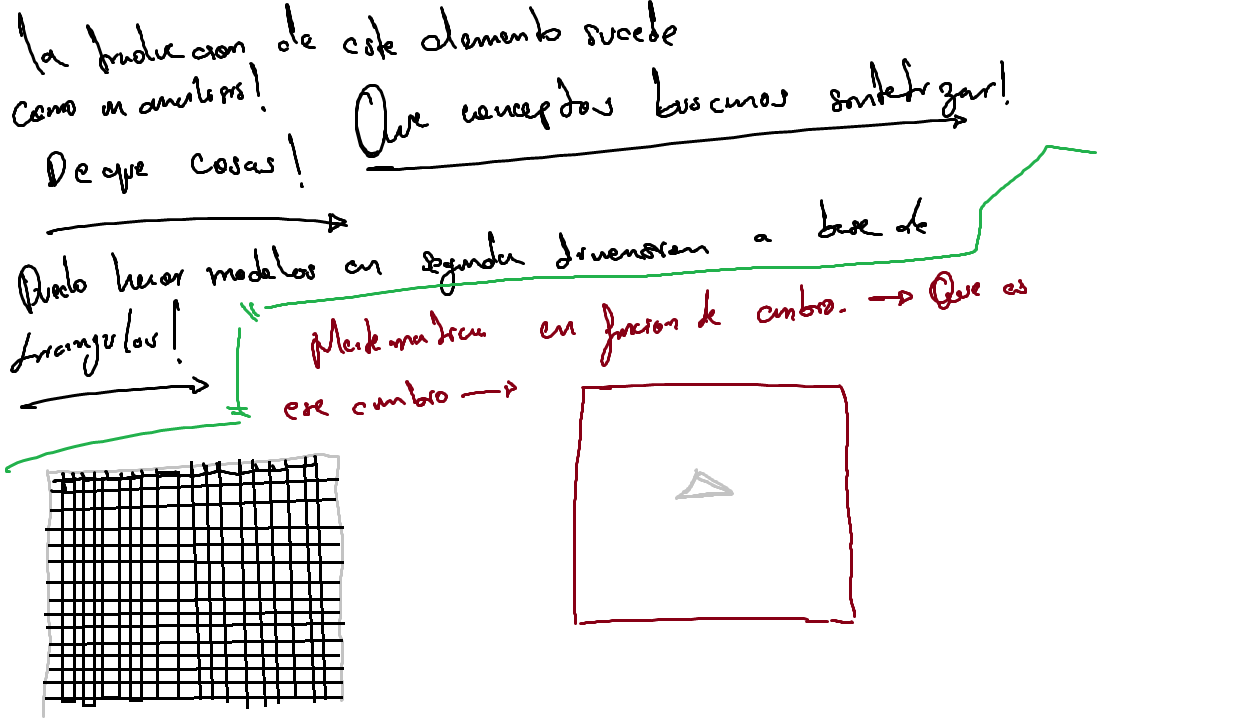 la traducion de este elemento sucede
como un analisis!
Que conceptos buscamos sintetizar!
De que cosas!
Puedo hacer modelos en segunda dimension a base de
triangulos!
Matematica en funcion de cambio. → Que es
ese cambio →